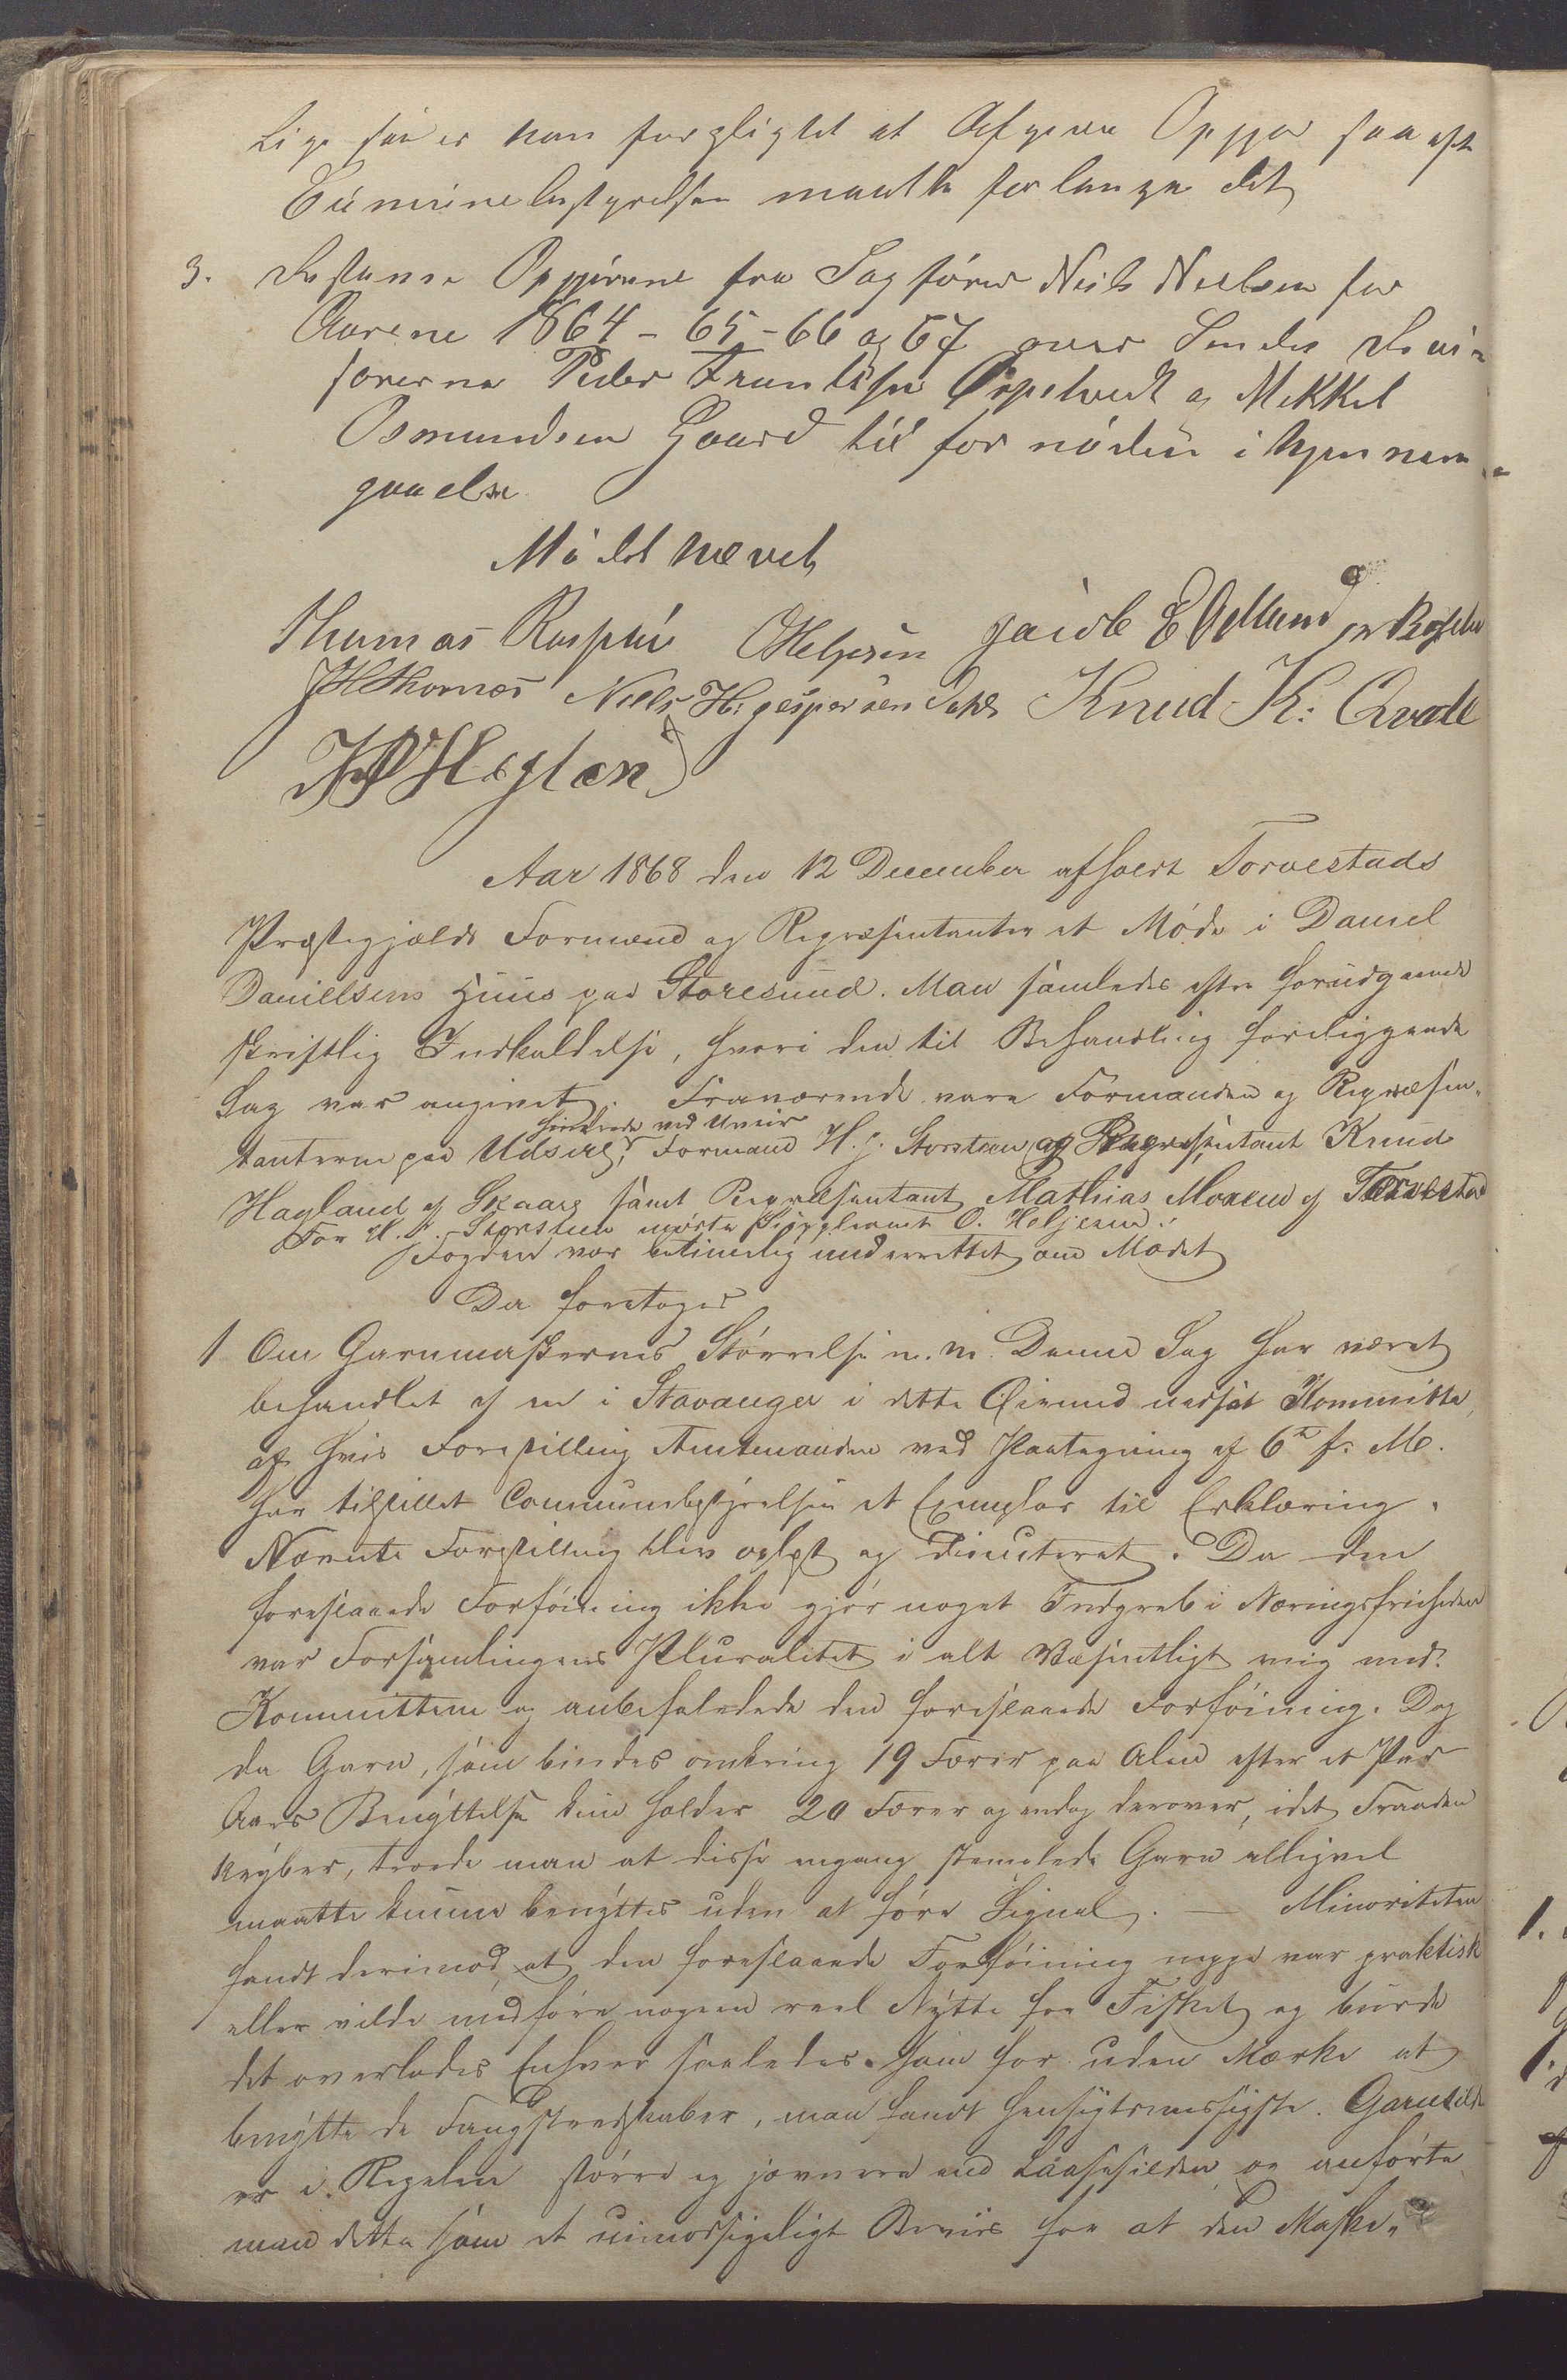 Lige saa er han forpligtet at Afgive Opgjør saa ofte
Comunebestyrelsen maatte forlange det
3. Desamme Opgjørene fra Sagfører Neils Neelsen for
Aarene 1864 - 65 - 66 og 67 over Sendes Revi-
sorerne Peder Frantssen Øspetvedt og Mekkel
Osmundsen Gaard til for nøden i hjennem-
gaaelse
Mødet hævet
Thomas OHelgesen Jacob E
JHThornæs Niels H: Jespersen Knud K: Qvale
Aar 1868 den 12 December afholdt Torvestads
Præstegjelds Formænd og Repræsentanter et Møde i Daniel
Danielsens Huus paa Storesund. Man samledes efter forudgaaende
skriftlig Indkaldelse, hvori den til Behandling foreliggende
Sag var angivet. Fraværende vare Formanden og Repræsen-
hindrede ved Uveir
tanterne paa Udsire, Formand H. J. Storsteen og Repræsentant Knud
Hagland af Skaare samt Repræsentant Mathias Monsen af Torvestad
For H. J. Storsteen mødte Suppleant O. Helgesen.
Fogden var betimelig underrettet om Mødet
Der foretoges
1 Om Garnmaskernes Størrelse m. m. Denne Sag har været
behandlet af en i Stavanger i dette Øiemed nedsat Kommitte,
af hvis Forestilling Amtmanden ved Paategning af 6te f. M.
har tilstillet Communebestyrelsen et Exemplar til Erklæring.
Nævnte Forestilling blev oplæst og discuteret. Da den
foreslaaede Forføining ikke gjør noget Indgreb i Næringsfriheden
var Forsamlingens Pluralitet i alt Væsentligt enig med
Kommitteen og anbefalede den foreslaaede Forføining. Dog
da Garn, som bindes omkring 19 Farer paa Alen efter et Par
Aars Benyttelse kun holder 20 Farer og endog derover, idet Traaden
kryber, troede man at disse engang stemplede Garn alligevel
maatte kunne benyttes uden at føre Signal. — Minoriteten
fandt derimod, at den foreslaaede Forføining neppe var praktisk
eller vilde medføre nogen reel Nytte for Fisket og burde
det overlades Enhver saaledes som før uden Mærke at
benytte de Fangstredskaber, man fandt hensigtsmessigste. Garnsilde
er i Regelen større og jævnere end Laasesilden og anførte
man dette som et uimodsigeligt Beviis for at den Maske-